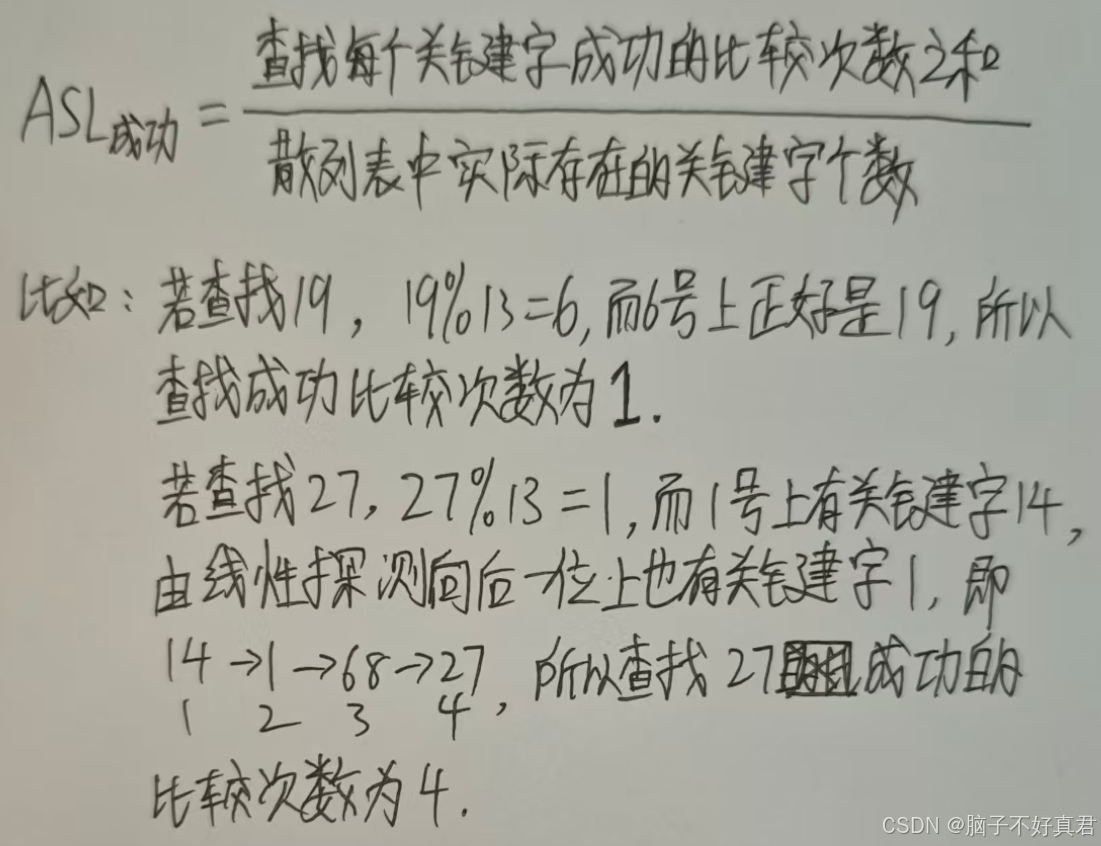 ASL成功 = 查找每个关键字成功的比较次数之和
散列表中实际存在的关键字个数
比如：若查找19，19%13=6，而6号上正好是19，所以
查找成功比较次数为1.
若查找27，27%13=1，而1号上有关键字14，
由线性探测向后一位上也有关键字1，即
14→1→68→27，所以查找27成功的
1 2 3 4
比较次数为4.
CSDN @脑子不好真君